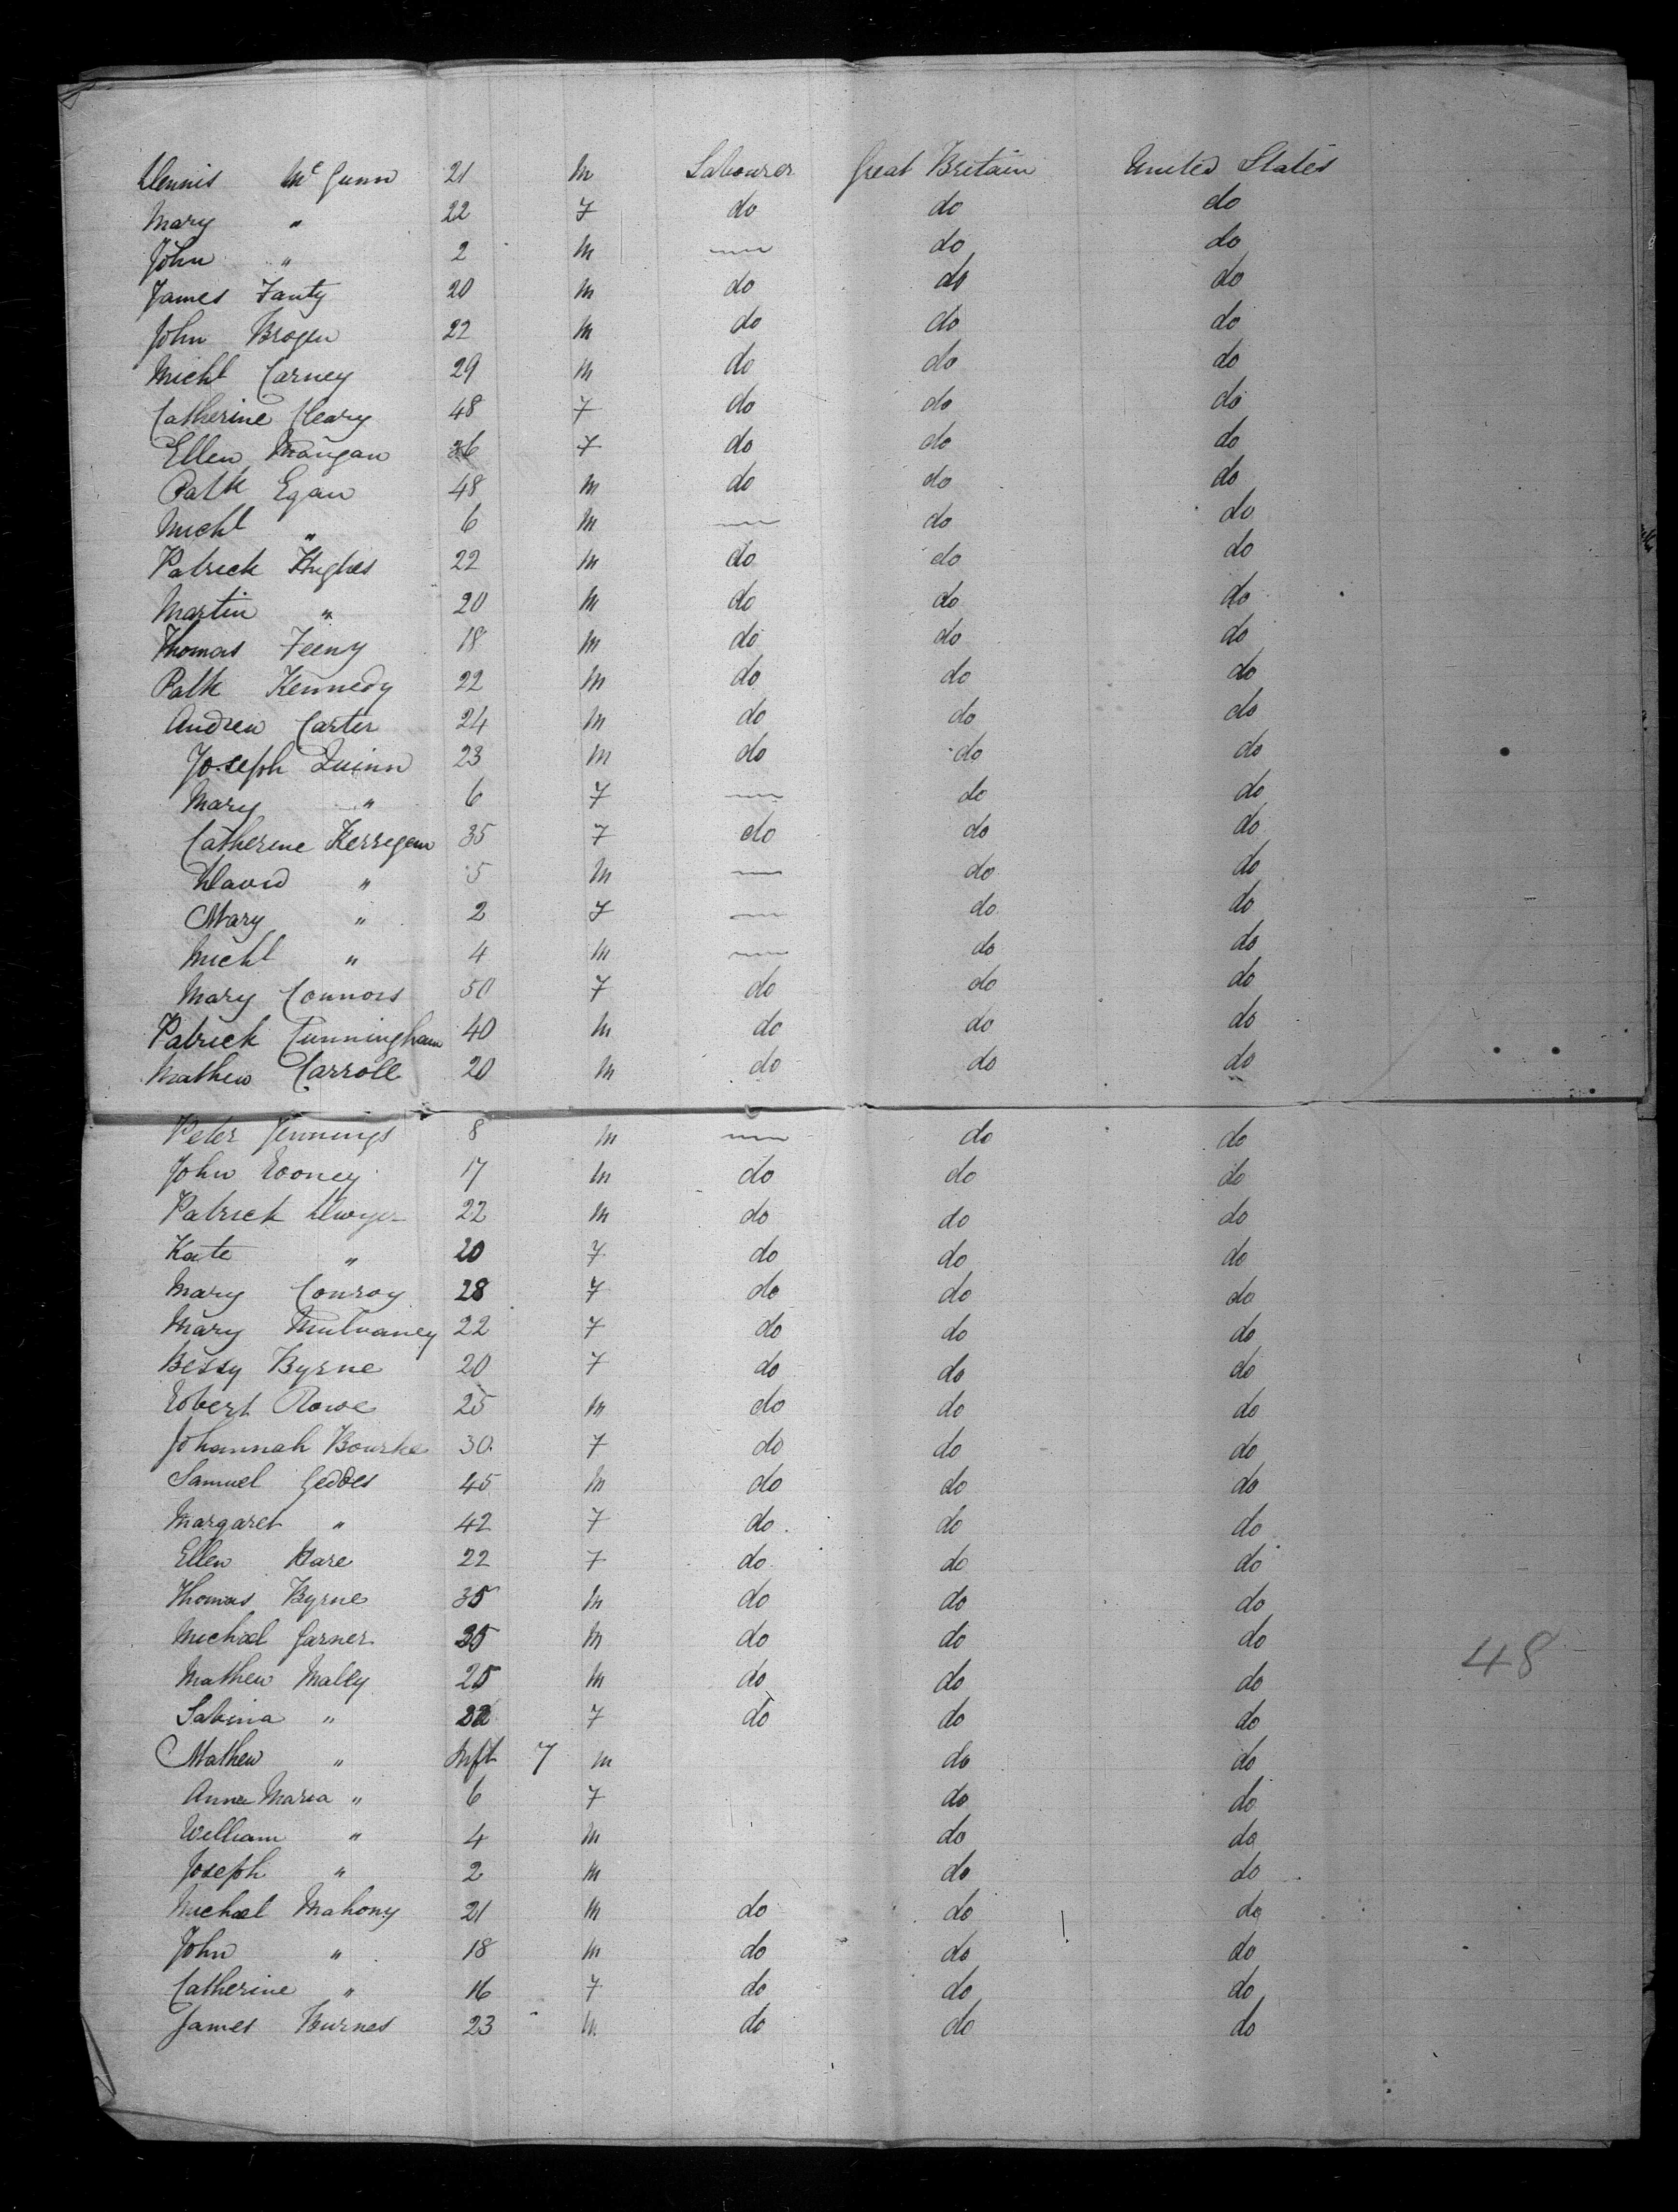 Dennis McGunn 21 M Labourer Great Britain United States
Mary " 22 F do do do
John " 2 M — do do
James Fanty 20 M do do do
John Brogen 22 M do do do
Michl Carney 29 M do do do
Catherine Cleary 48 F do do do
Ellen Mangan 36 F do do do
Patk Egan 48 M do do do
Michl " 6 M — do do
Patrick Hughes 22 M do do do
Martin " 20 M do do do
Thomas Feeny 18 M do do do
Patk Kennedy 22 M do do do
Andrew Carter 24 M do do do
Joseph Quinn 23 M do do do
Mary " 6 F — do do
Catherine Kerregan 35 F do do do
David " 5 M — do do
Mary " 2 F — do do
Michl " 4 M — do do
Mary Connors 50 F do do do
Patrick Cunningham 40 M do do do
Mathew Carroll 20 M do do do
Peter Jennings 8 M — do do
John Rooney 17 M do do do
Patrick Dwyer 22 M do do do
Kate " 20 F do do do
Mary Conroy 28 F do do do
Mary Mulvaney 22 F do do do
Bessy Byrne 20 F do do do
Robert Rowe 25 M do do do
Johannah Bourke 30 F do do do
Samuel Geddes 45 M do do do
Margaret " 42 F do do do
Ellen Hare 22 F do do do
Thomas Byrne 35 M do do do
Michael Garner 35 M do do do
Mathew Maley 25 M do do do 48
Sabina " 22 F do do do
Mathew " Inft 7 M do do
Anna Maria " 6 F do do
William " 4 M do do
Joseph " 2 M do do
Michael Mahony 21 M do do do
John " 18 M do do do
Catherine " 16 F do do do
James Burnes 23 M do do do